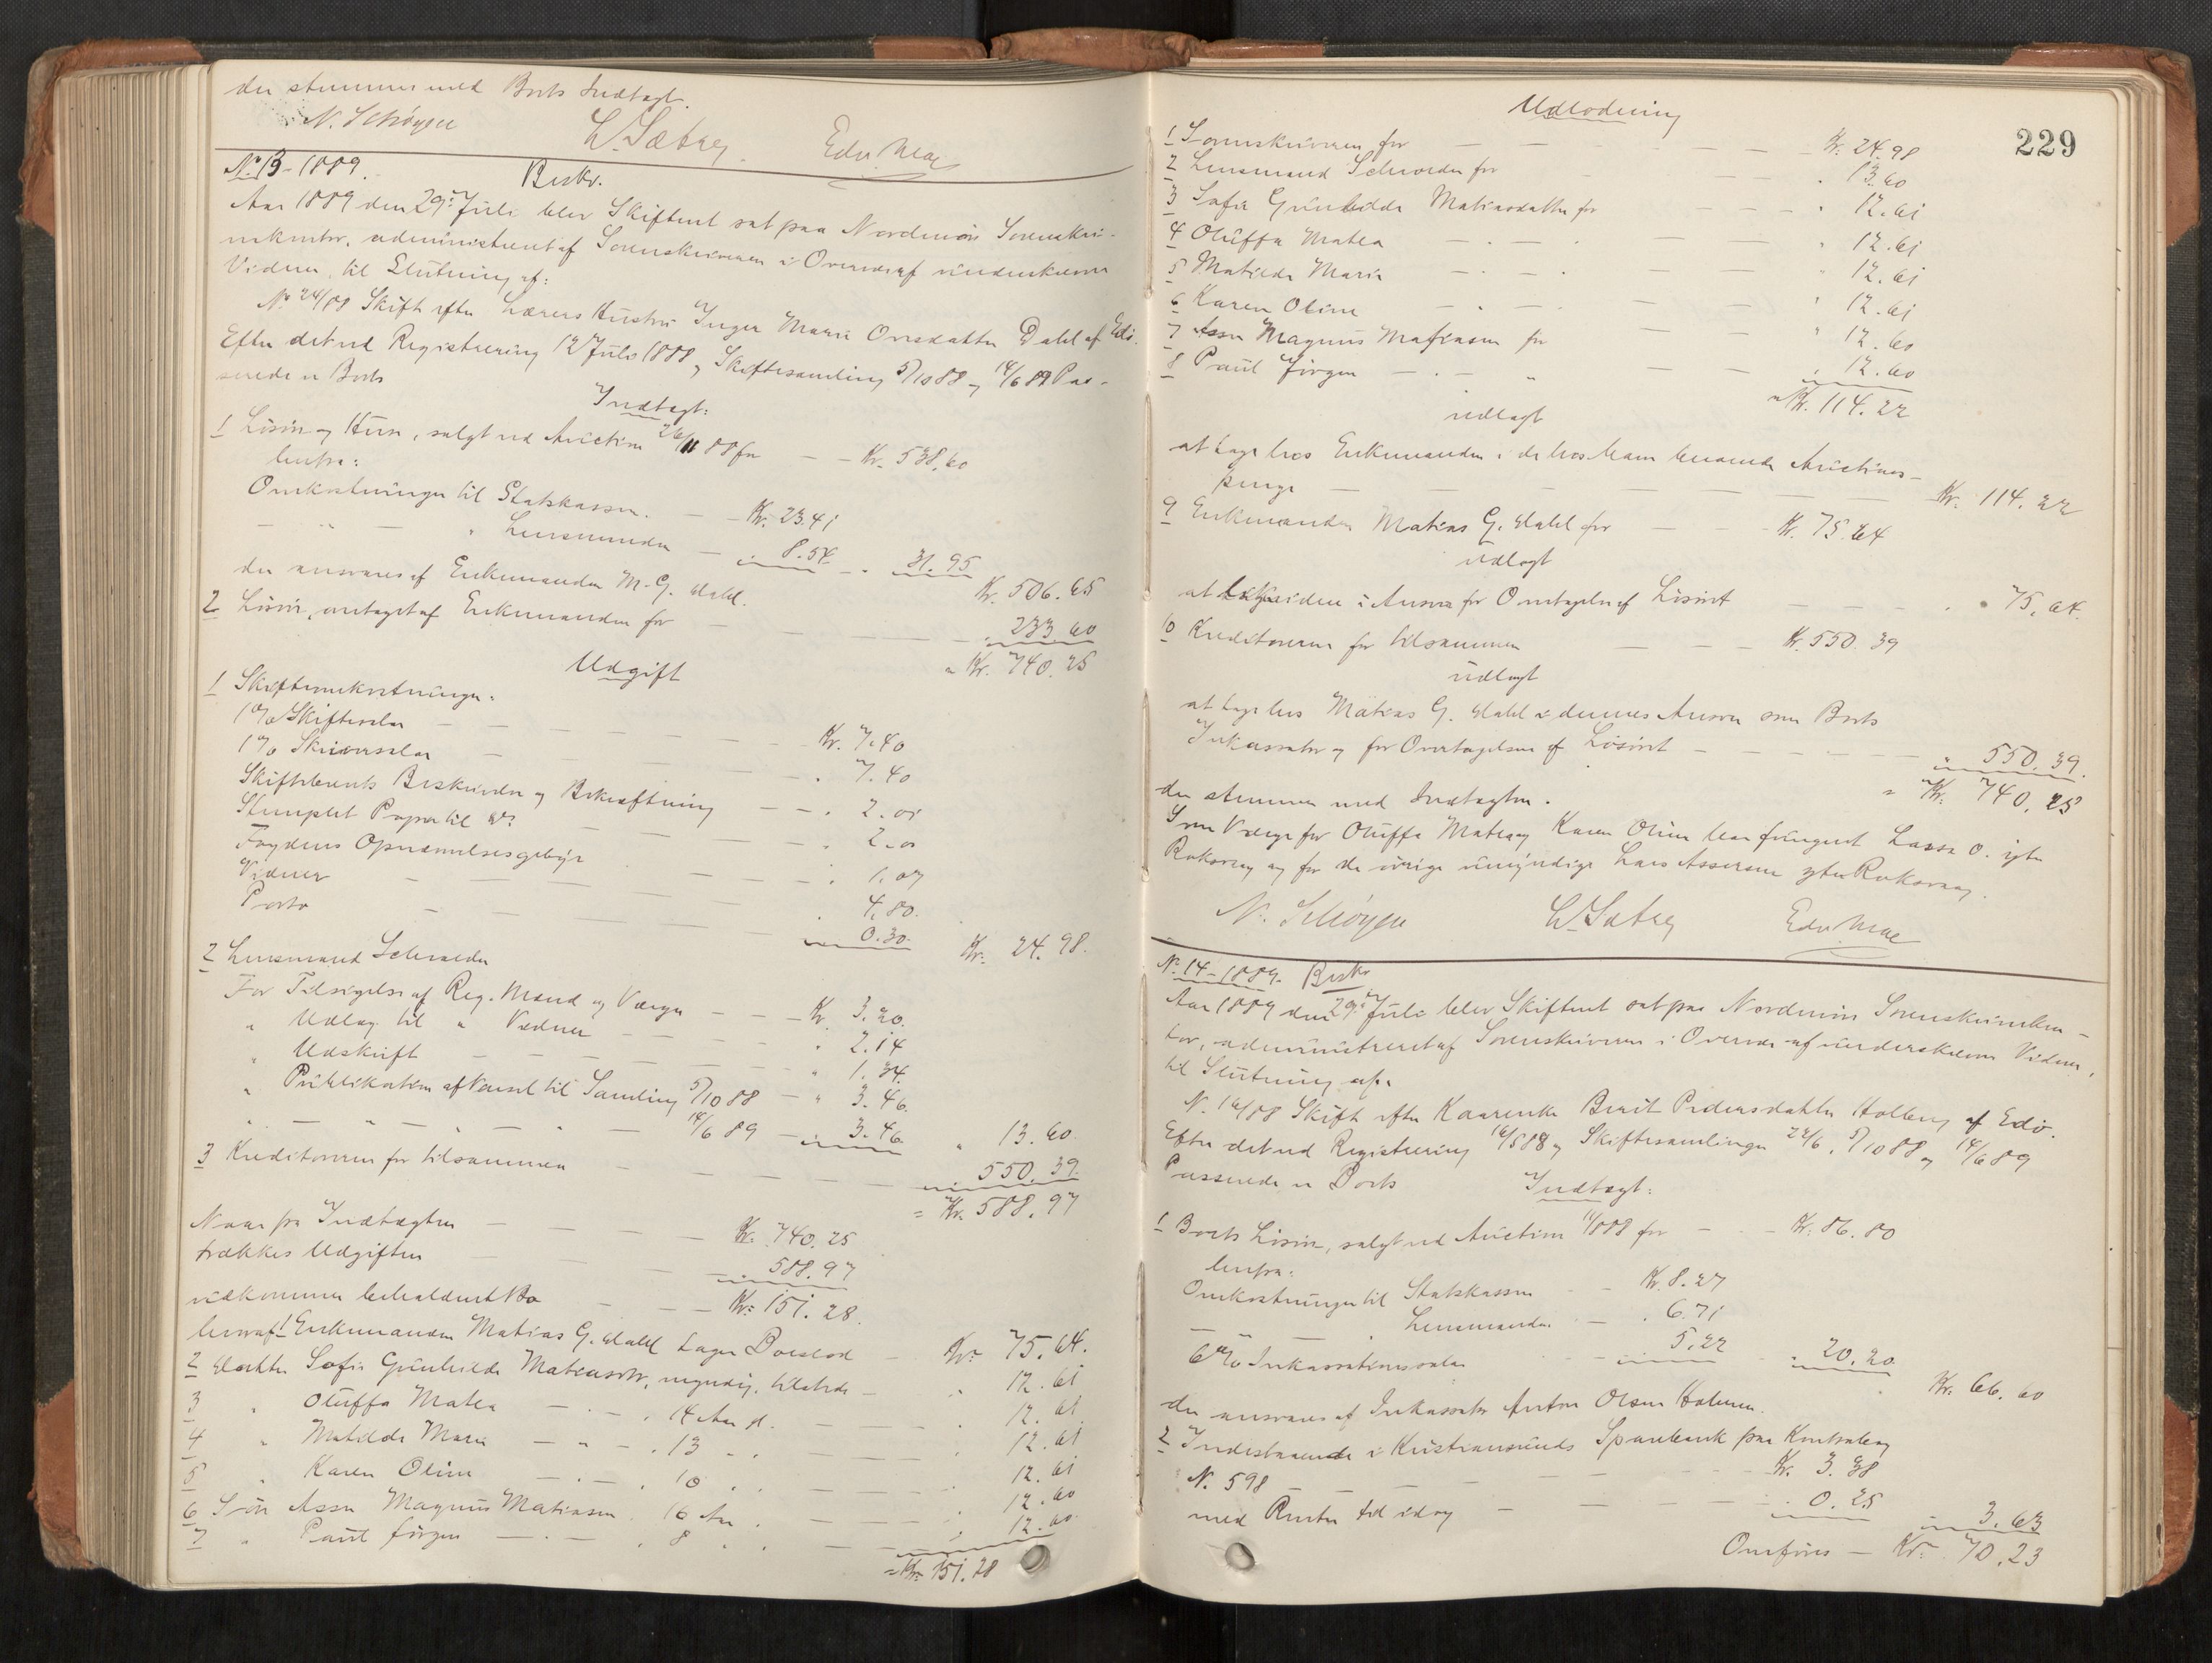 der stemmer med Boets Indtægt.
N. Schøyen L. Sætrey Edv. Moe
No 13-1889. Beskr.
Aar 1889 den 29de Juli blev Skifteret sat paa Nordmøre Sorenskri-
verkontor, administreret af Sorenskriveren i Overvær af underskrevne
Vidner, til Slutning af:
No 24/88 Skifte efter Lærers Hustru Inger Marie Orsdatter Dahl af Edø.
Efter det ved Registrering 12 Juli 1888 og Skiftesamling 5/10 88 og 14/6 89 Pas-
serede er Boets
Indtægt:
1 Løsøre og Huse, solgt ved Auction 26/11 88 for - - Kr. 538.60
herfra:
Omkostninger til Statskassen. - Kr. 23.41
- " - " Lensmanden - " 8.54 - " 31.95
Kr. 506.65
der ansvares af Enkemanden M. G. Dahl.
2 Løsøre, overtaget af Enkemanden for - - - " 233.60
= Kr. 740.25
Udgift
1 Skifteomkostninger:
1% Skiftesalar - - - Kr. 7.40
1% Skriversalar - - - " 7.40
Skiftebrevets Beskrivelse og Bekræftning - - " 2.01
Stemplet Papir til do: - - - " 2.00
Fogdens Opnævnelsesgebyr - - " 1.07
Vidner - - - " 4.80.
Porto - - - " 0.30. Kr. 24.98.
2 Lensmand Schrøder
For Tilsigelse af Reg. Mænd og Værger - - Kr. 3.20.
" Udlæg til " Vidner - - " 2.14
" Udskrift - - - " 1.34.
" Publikation af Varsel til Samling 5/10 88 - " 3.46.
" - " - " - " - " 14/6 89 - " 3.46. " 13.60
3 Kreditorerne for tilsammen - - - " 550.39.
= Kr. 588.97
Naar fra Indtægten - - - Kr. 740.25
trækkes Udgiften - - - " 588.97
udkommer beholdent Bo - - - Kr. 151.28.
hvoraf 1 Enkemanden Matias G. Dahl tager Boeslod - Kr. 75.64.
2 Datter Sofie Gunhilde Matiasdtr, myndig, tilstede - " 12.61
3 " Oluffa Matea - " - " 14 Aar gl. - - " 12.61
4 " Matilde Marie - " - " 13 " " - - " 12.61
5 " Karen Oline - " - " 10 " " - - " 12.61
6 Søn Asser Magnus Matiassen " 16 Aar " - - " 12.60
7 " Paul Jörgen - " - " 8 " " - - " 12.60
= Kr. 151.28
229
Udlodning
1 Sorenskriveren for - - - Kr. 24.98
2 Lensmand Schroeder for - - " 13.60
3 Sofie Gunhilde Matiasdatter for - - " 12.61
4 Oluffa Matea - " - " - - " 12.61
5 Matilde Marie - " - " - - " 12.61
6 Karen Oline - " - " - - " 12.61
7 Asser Magnus Matiassen for - - " 12.60
8 Paul Jörgen - " - " " 12.60
= Kr. 114.22
udlagt
at tage hos Enkemanden i de hos ham beroende Auctions-
penge - - - - Kr. 114.22
9 Enkemanden Matias G. Dahl for - - Kr. 75.64
udlagt
at i Ansvar for Overtagelse af Løsøret - - - " 75.64.
10 Kreditorerne for tilsammen - - Kr. 550.39
udlagt
at tage hos Matias G. Dahl i dennes Ansvar som Boets
Inkassator og for Overtagelsen af Løsøret - - - " 550.39.
= Kr. 740.25
der stemmer med Indtægten.
Som Værge for Oluffa Matea og Karen Oline har fungeret Lasse O.
og for de øvrige umyndige Lars Assersen
N. Schøyen L. Sætrey Edv. Moe
No 14-1889. Beskr.
Aar 1889 den 29de Juli blev Skifteret sat paa Nordmøre Sorenskriverkon-
tor, administreret af Sorenskriveren i Overvær af underskrevne Vidner,
til Slutning af:
No 16/88 Skifte efter Kaarenke Berit Pedersdatter Holberg af Edø.
Efter det ved Registrering 16/5 88 og Skiftesamlinger 22/6, 5/10 88 og 14/6 89
Passerede er Boets
Indtægt:
1 Boets Løsøre, solgt ved Auction 11/8 88 for - - Kr. 86.80
herfra:
Omkostninger til Statskassen - - Kr. 8.27
Lensmanden - " 6.71
6% Inkassationssalar - - " 5.22 " 20.20
Kr. 66.60
der ansvares af Inkassator Anton Olsen Holmen.
2 Indestaaende i Kristiansunds Sparebank paa Kontrabog
No. 598 - - - Kr. 3.38
med Renter til idag - - - " 0.25
" 3.63
Overføres - Kr. 70.23